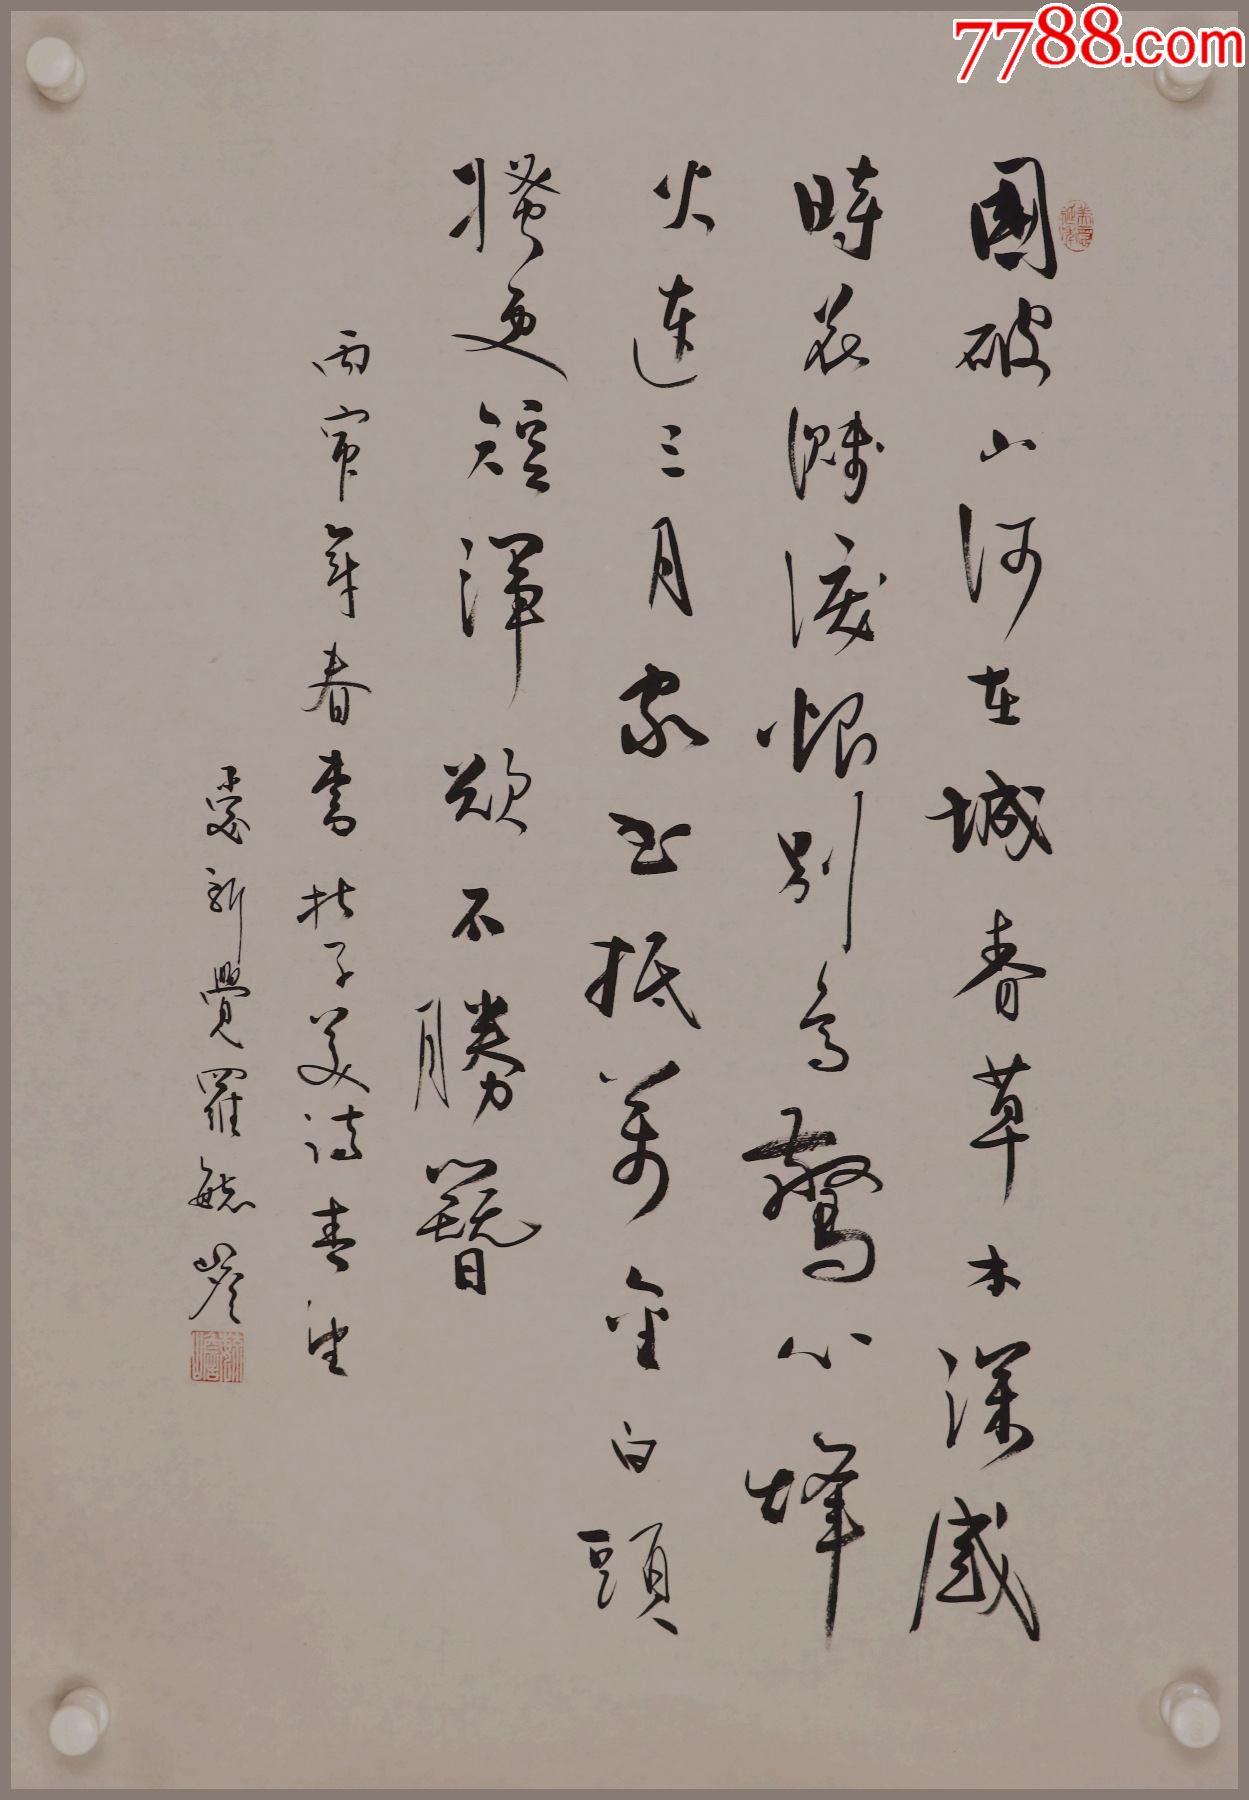 7788.com
國破山河在城春草木深感
時花濺淚恨別鳥驚心烽
火連三月家書抵萬金白頭
搔更短渾欲不勝簪
丙寅年春書杜子美詩春望
愛新覺羅毓嶦